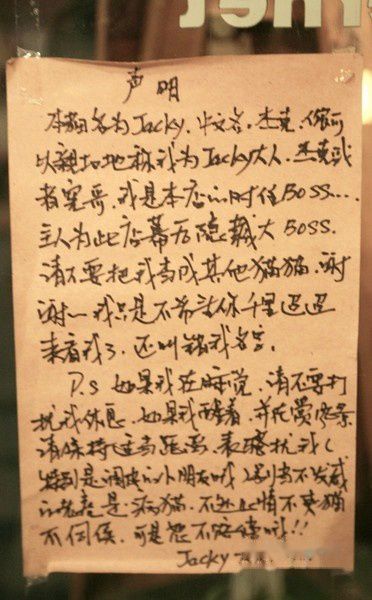 声明
本猫名为Jacky,中文名:杰克,你可
以亲切地称我为Jacky大人,杰克或
者宝哥.我是本店的时任BOSS...
主人为此店幕后隐藏大BOSS.
请不要把我当成其他猫猫.谢
谢~我只是不希望你千里迢迢
来看我了,还叫错我名字.
P.S 如果我在睡觉,请不要打
扰我休息,如果我醒着,并在赏风景
请保持适当距离,表骚扰我(
特别是调皮的小朋友哦)别当不发威
的老虎是病猫.不然
不伺候,可是恕不赔偿哦!!
Jacky